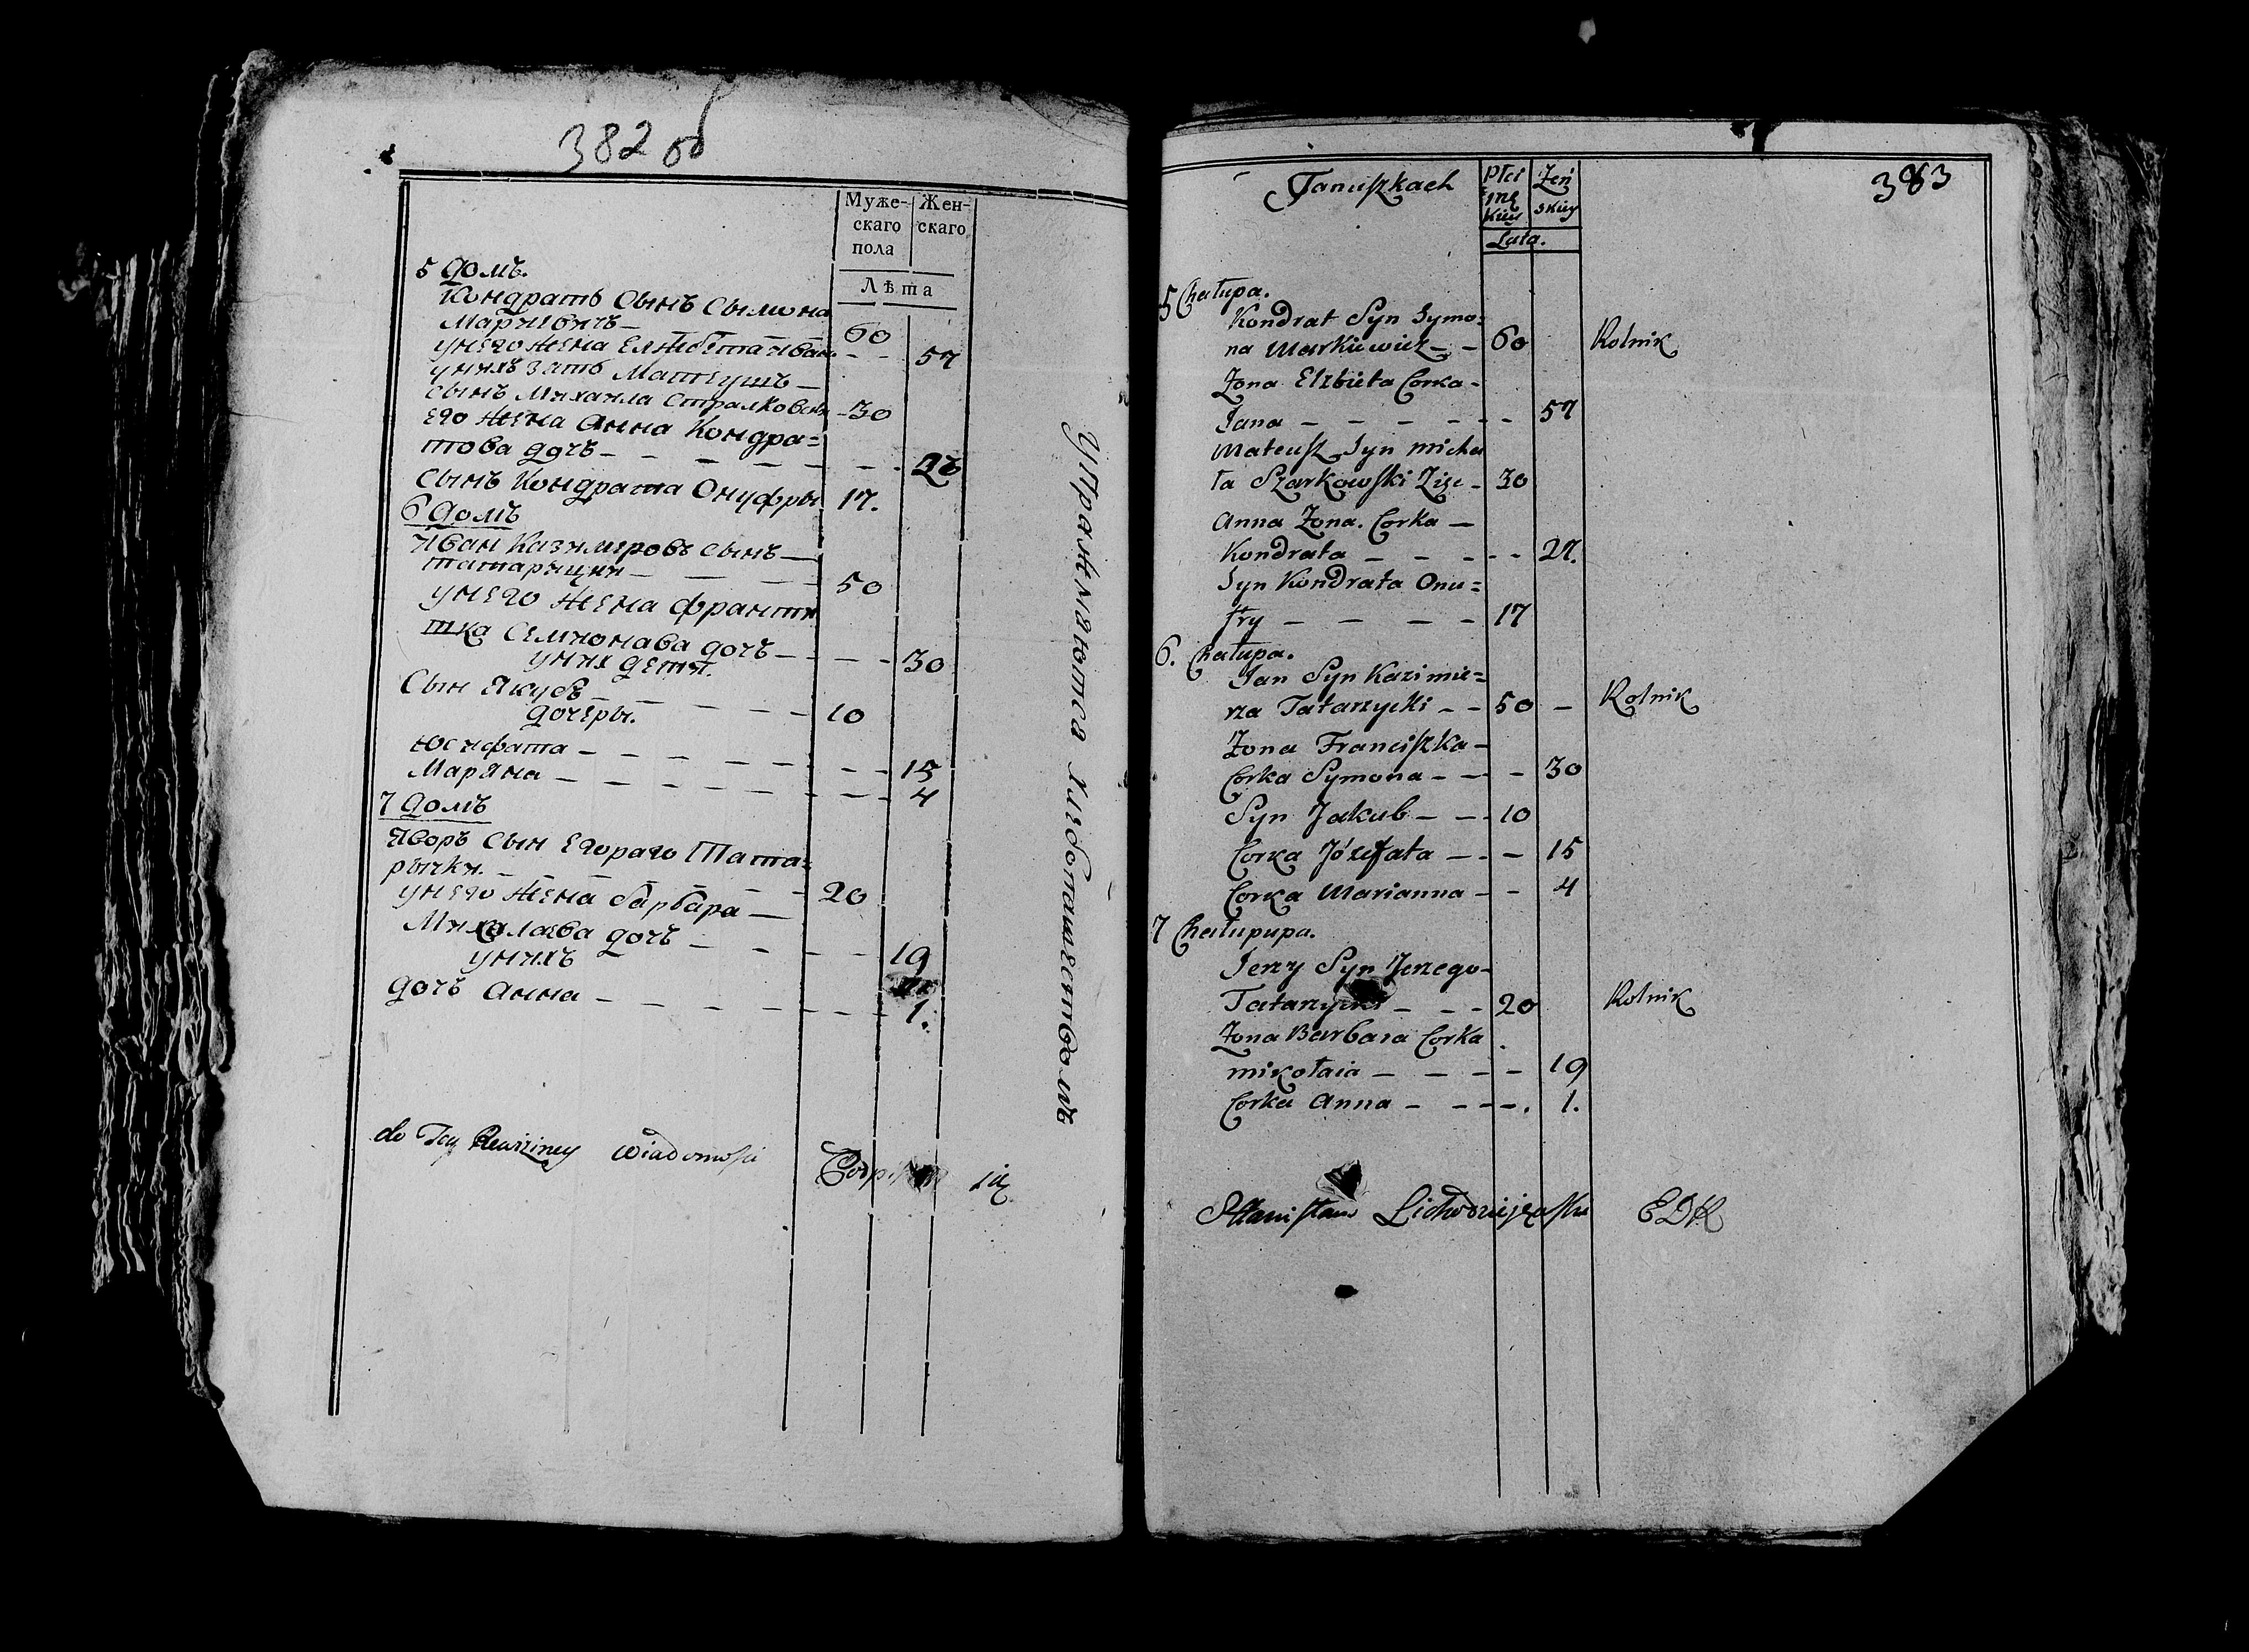 382 об
Муже-
скаго
пола
Жен-
скаго
Лѣта
5 домъ.
Кондратъ Сынъ Сымона
Маркевичъ — 60
унего жена Елжбета Иван — — 57
унихъ зать Матеушъ —
сынъ Михаила Стралковски — 30
его жена Анна Кондра=
това дочъ — — — — — —
сынъ Кондрата Онуфры 17.
6 домъ
Иван Казимеровъ сынъ —
татарицки — — — — 50
унего жена франти
шка Семионава дочъ — — — 30
уних дети.
Сын Якубъ — — — — — 10
дочеры.
Юсифата — — — — — — — 15
Марѧна — — — — — — — 4
7 домъ
Яворъ сын Егораго Тата=
рычки. — — — — 20
унего жена барбара —
Миколаева дочъ — — — — 19
унихъ
дочъ Анна — — — — — — 1.
do Tey Rewizyiney Wiadomosci
się
Упражняются хлебопашествомъ
383
Januszkach
Płci
mę
skiey
Żeń
skiey
Lata.
5 Chałupa.
Kondrat Syn Symo=
na Markiewicz — — 60 Rolnik
Zona Elzbieta Corka —
Jana — — — — — — 57
Mateusz Syn Micha
ła Szarkowski Zięc — 30
Anna Zona. Corka —
Kondrata — — — — — 27.
Syn Kondrata Onu=
fry — — — — 17
6. Chałupa.
Jan Syn Kazimie=
rza Tatarzycki — — 50 — Rolnik
Zona Franciszka —
Corka Symona — — — 30
Syn Jakub — — 10
Corka Józefata — — — 15
Corka Marianna — — 4
7 Chałupupa.
Jerzy Syn Jerzego —
Tatarzycki — — — 20 Rolnik
Zona Barbara Corka
Mikołaia — — — — — 19
Corka Anna — — — —. 1.
Stanisław EDK